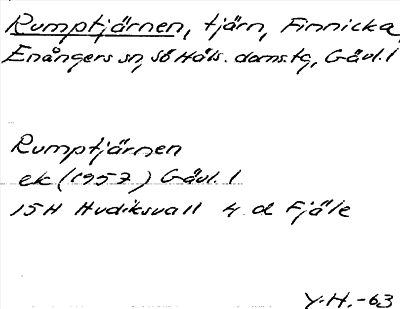 Rumptjärnen, tjärn, Finnicka,
Enångers sn, Sö Häls. domstg, Gävl. l
Rumptjärnen
ek (1957) Gävl. l
15H Hudiksvall 4 d Fjäle
Y.H.-63